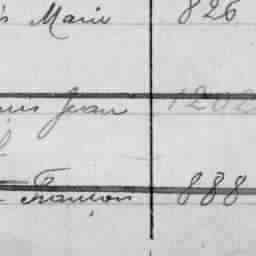 Marie 826
Jean 1202
François 888